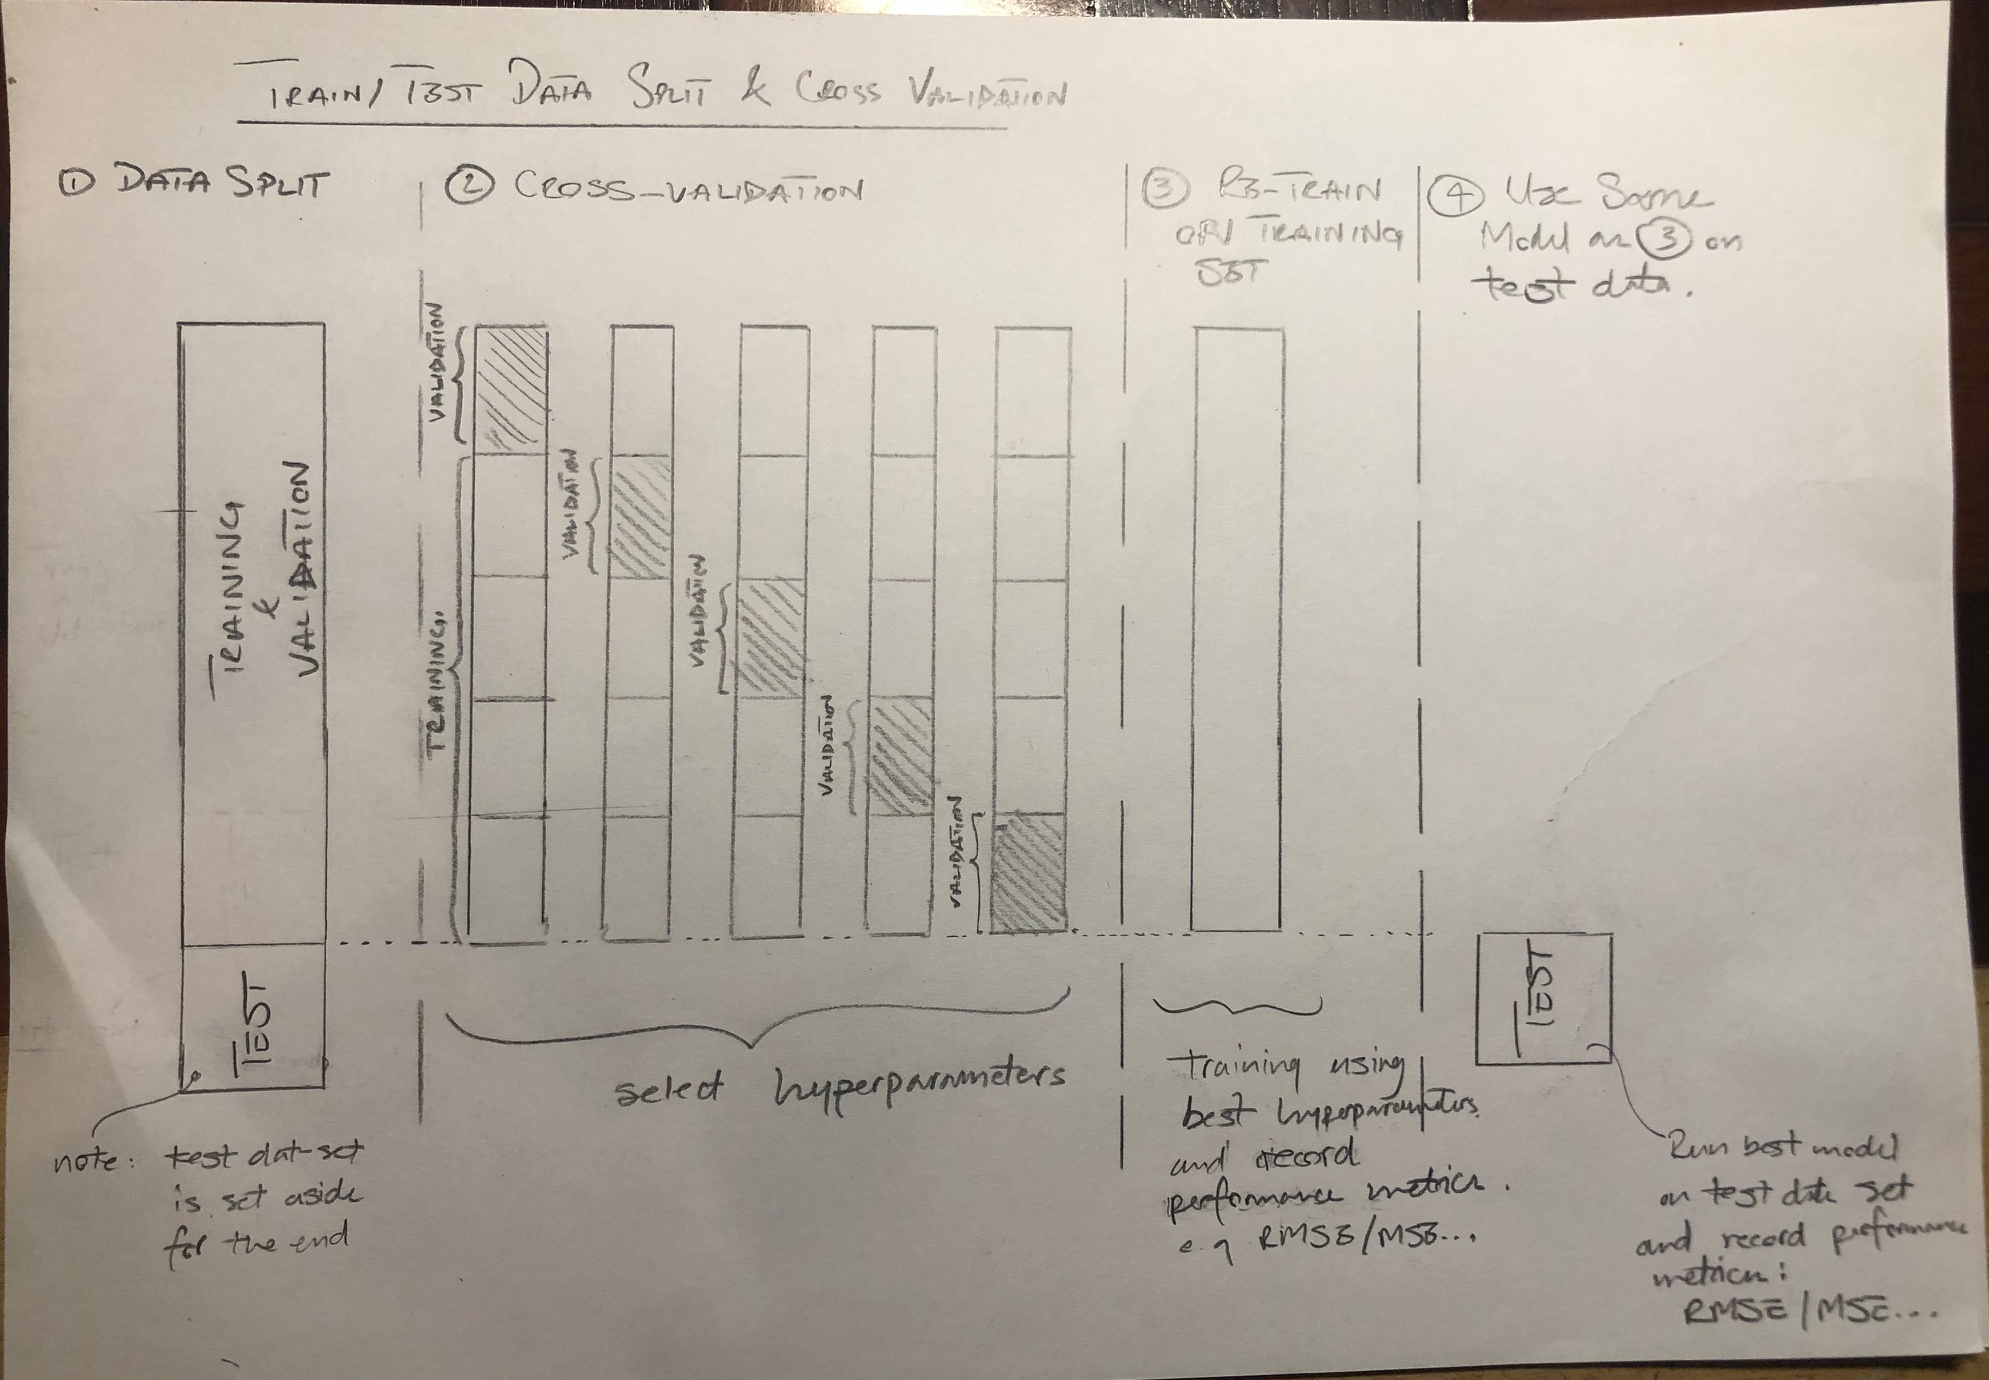 TRAIN/TEST DATA SPLIT & CROSS VALIDATION
① DATA SPLIT
TRAINING
&
VALIDATION
TEST
note: test dat-set
is set aside
for the end
② CROSS-VALIDATION
VALIDATION
TRAINING.
VALIDATION
VALIDATION
VALIDATION
VALIDATION
select hyperparameters
③ RE-TRAIN
ON TRAINING
SET
Training using
best hyperparameters
and record
performance metrics.
e.g RMSE/MSE...
④ Use Same
Model as ③ on
test data.
TEST
Run best model
on test data set
and record performance
metrics:
RMSE/MSE...